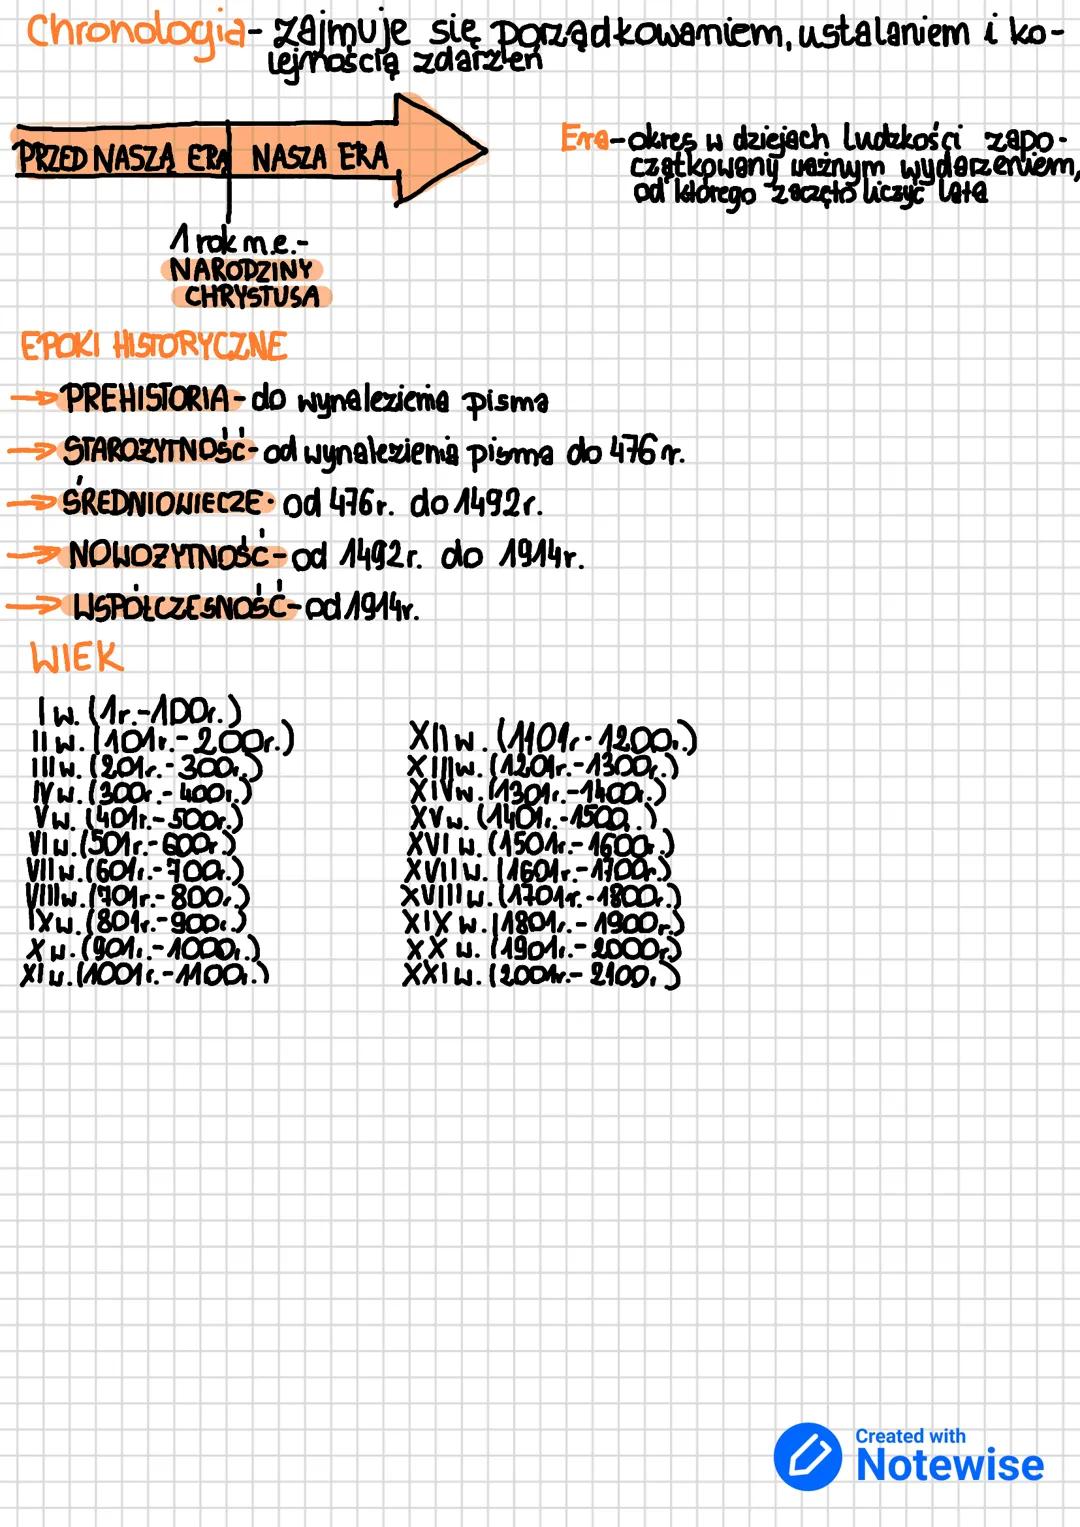 Chronologia- zajmuje się porządkowaniem, ustalaniem i ko-
lejnością zdarzeń
PRZED NASZĄ ERĄ NASZA ERA
Era-okres w dziejach ludzkości zapo-
czątkowany ważnym wydarzeniem,
od którego zaczęto liczyć lata
1 rok n.e.-
NARODZINY
CHRYSTUSA
EPOKI HISTORYCZNE
→ PREHISTORIA- do wynalezienia pisma
→ STAROŻYTNOŚĆ- od wynalezienia pisma do 476 r.
→ ŚREDNIOWIECZE- od 476r. do 1492r.
→ NOWOŻYTNOŚĆ- od 1492r. do 1914r.
→ WSPÓŁCZESNOŚĆ- od 1914r.
WIEK
I w. (1r.-100r.)
II w. (101r.-200r.)
III w. (201r.-300r.)
IV w. (300r.-400r.)
V w. (401r.-500r.)
VI w. (501r.-600r.)
VII w. (601r.-700r.)
VIII w. (701r.-800r.)
IX w. (801r.-900r.)
X w. (901r.-1000r.)
XI w. (1001r.-1100r.)
XII w. (1101r.-1200r.)
XIII w. (1201r.-1300r.)
XIV w. (1301r.-1400r.)
XV w. (1401r.-1500r.)
XVI w. (1501r.-1600r.)
XVII w. (1601r.-1700r.)
XVIII w. (1701r.-1800r.)
XIX w. (1801r.-1900r.)
XX w. (1901r.-2000r.)
XXI w. (2001r.-2100r.)
Created with
Notewise